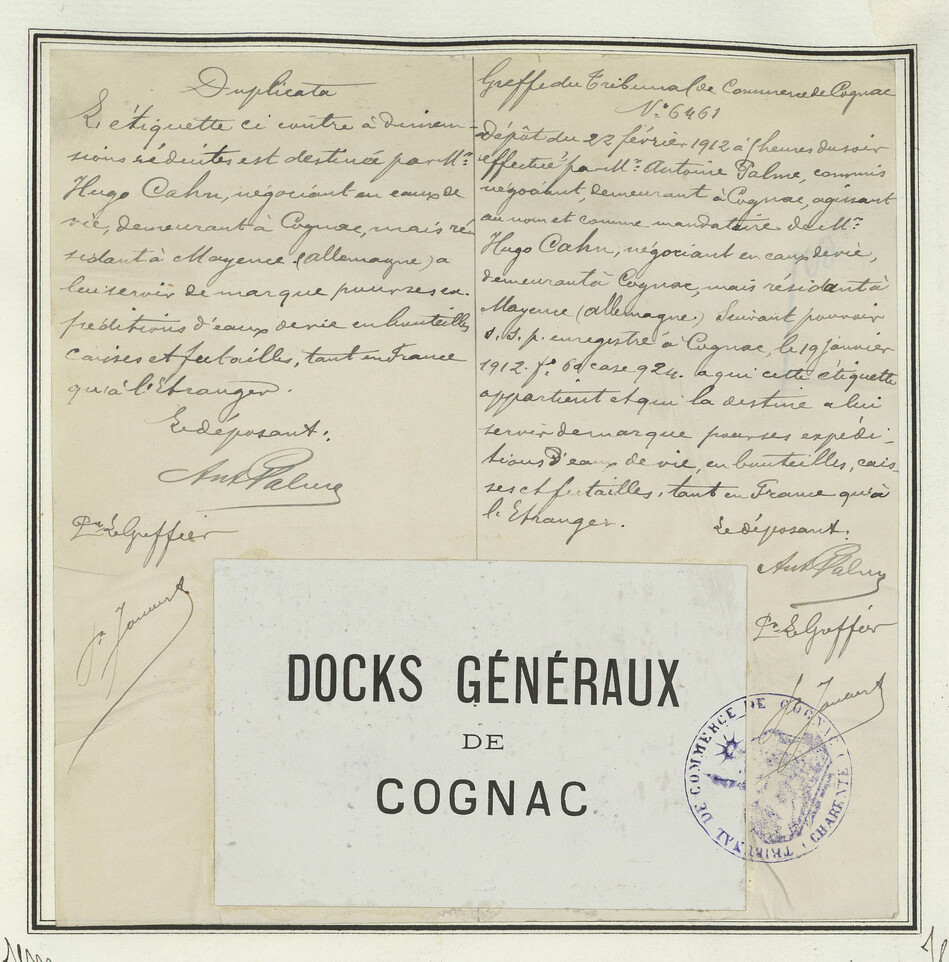 Duplicata
L'étiquette ci contre à dimen-
sions réduites est destinée par Mr.
Hugo Cahn, négociant en eaux de
vie, demeurant à Cognac, mais ré
sidant à Mayence (allemagne) a
lui servir de marque pour ses ex-
péditions d'eaux de vie en bouteilles
caisses et futailles, tant en France
qu'à l'Etranger.
Le déposant:
Ant Palme
Pr. Le Greffier
Greffe du Tribunal de Commerce de Cognac
No. 6461
Dépôt du 22 février 1912 à heures du soir
effectué par Mr. Antoine Palme, commis
négociant, demeurant à Cognac, agissant
au nom et comme mandataire de Mr.
Hugo Cahn, négociant en eaux de vie,
demeurant à Cognac, mais résidant à
Mayence (allemagne.) Suivant pouvoir
s. s. p. enregistré à Cognac, le 19 janvier
1912. fo. 60 case 924. a qui cette étiquette
appartient et qui la destine a lui
servir de marque pour ses expédi-
tions d'eaux de vie, en bouteilles, cais-
ses et futailles, tant en France qu'à
l'Etranger.
Le déposant:
Ant Palme
Pr. Le Greffier
DOCKS GÉNÉRAUX
DE
COGNAC
TRIBUNAL DE COMMERCE DE COGNAC (CHARENTE)